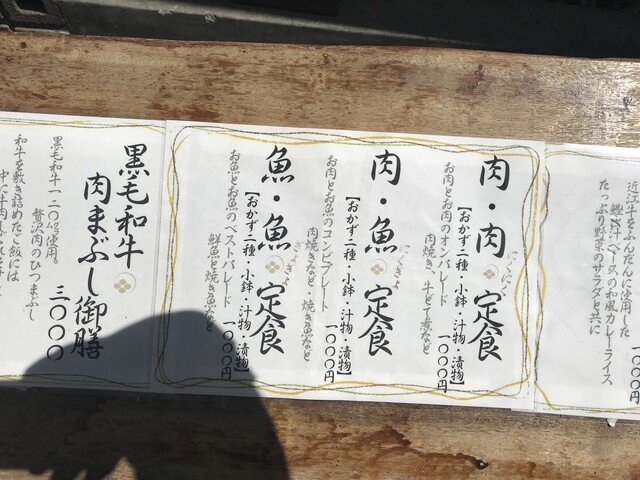 近江牛をふんだんに使用した
鰹だしベースの和風カレーライス
たっぷり野菜のサラダと共に
にくにく
肉・肉定食
【おかず二種・小鉢・汁物・漬物】
お肉とお肉のオンパレード
肉焼き、牛どて煮など
一〇〇〇円
にくぎょ
肉・魚定食
【おかず二種・小鉢・汁物・漬物】
お肉とお魚のコンビプレート
肉焼きなど・焼き魚など
一〇〇〇円
ぎょぎょ
魚・魚定食
【おかず二種・小鉢・汁物・漬物】
お魚とお魚のベストパレード
鮮魚と焼き魚など
一〇〇〇円
黒毛和牛
肉まぶし御膳
三〇〇〇
黒毛和牛一二〇%使用。
贅沢肉のひつまぶし
和牛を敷き詰めたご飯へは